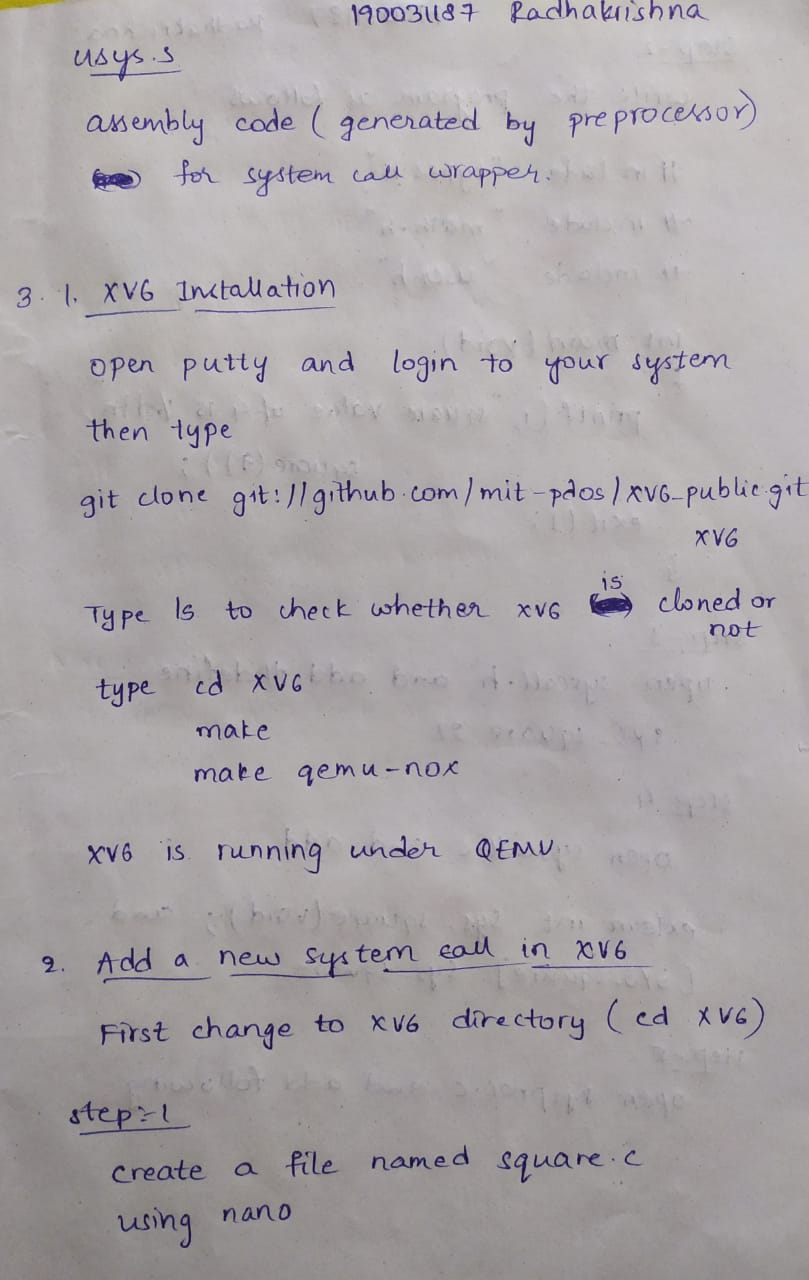 190031187 Radhakrishna
usys.s
assembly code (generated by preprocessor)
for system call wrapper.
3. 1. XV6 Installation
open putty and login to your system
then type
git clone git://github.com/mit-pdos/xv6-public.git
xv6
Type ls to check whether xv6 is cloned or
not
type cd xv6
make
make qemu-nox
xv6 is running under QEMU.
2. Add a new system call in xv6
First change to xv6 directory (cd xv6)
step:-1
create a file named square.c
using nano